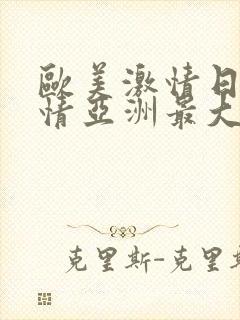 歐美激情日
情亞洲最大
克里斯-克里斯